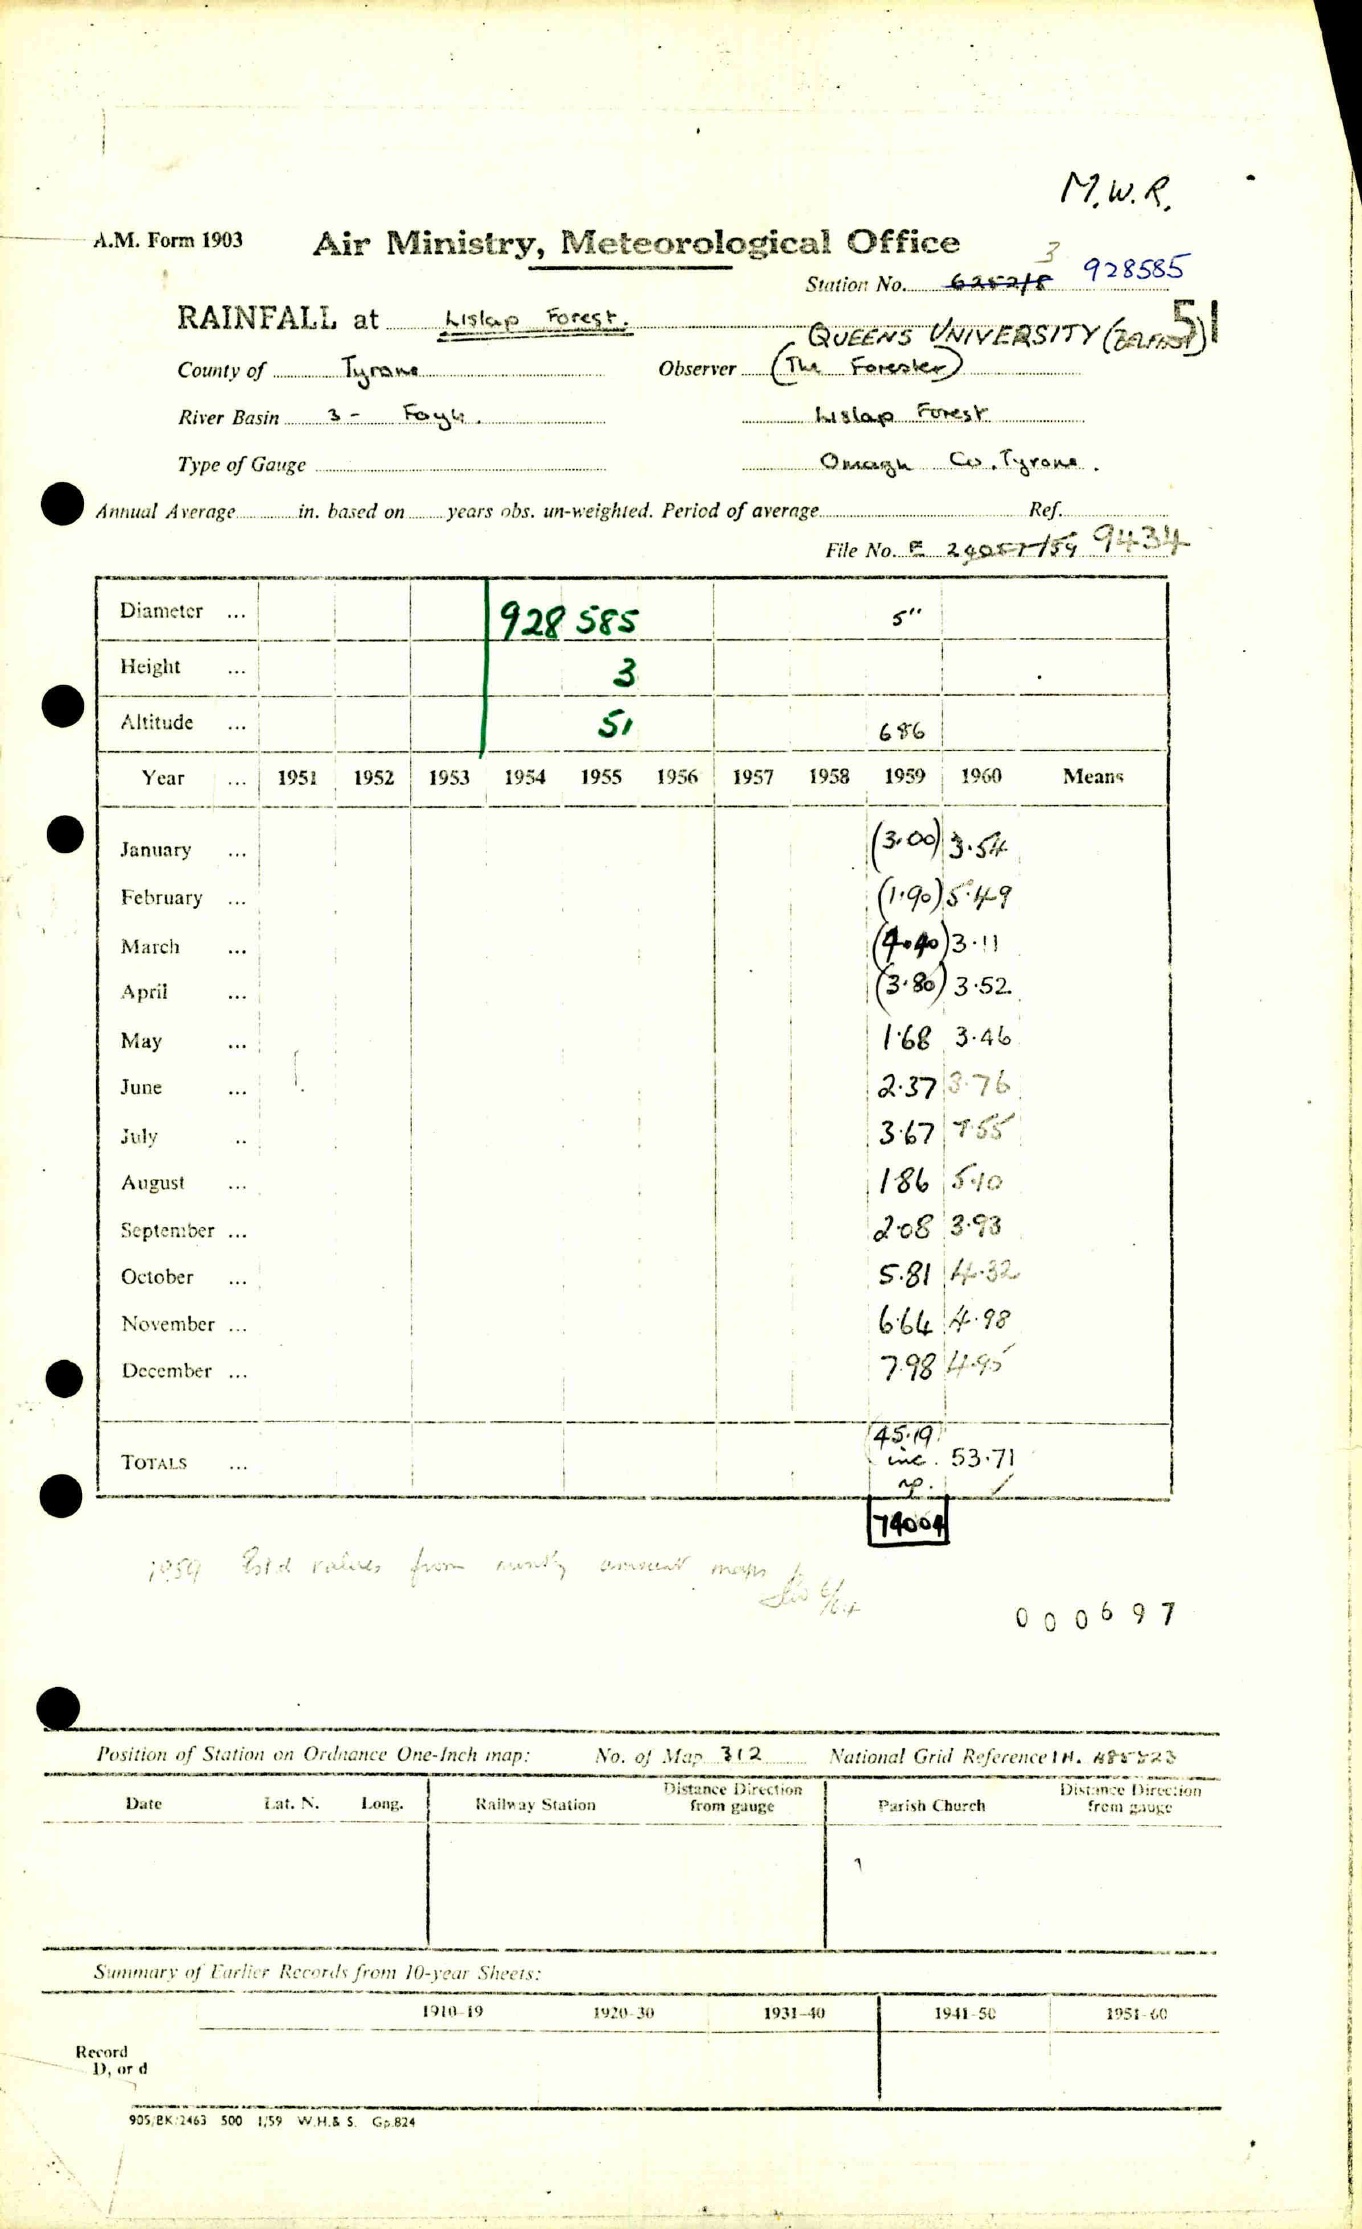 M.W.R.
A.M. Form 1903 Air Ministry, Meteorological Office
3
Station No. 6252/8 928585
RAINFALL at Lislap Forest. 51
QUEENS UNIVERSITY (BELFAST)
County of Tyrone Observer (The Forester)
River Basin 3 - Foyle. Lislap Forest
Type of Gauge Omagh Co. Tyrone.
Annual Average in. based on years obs. un-weighted. Period of average Ref.
File No. E 9434
Diameter ... 928 585 5"
Height ... 3
Altitude ... 51 686
Year ... 1951 1952 1953 1954 1955 1956 1957 1958 1959 1960 Means
January ... (3.00) 3.54
February ... (1.90) 5.49
March ... (4.40) 3.11
April ... (3.80) 3.52
May ... 1.68 3.46
June ... 2.37 3.76
July .. 3.67 7.55
August ... 1.86 5.10
September ... 2.08 3.93
October ... 5.81 4.32
November ... 6.64 4.98
December ... 7.98 4.95
TOTALS ... 45.19 inc. 53.71
74004
1959 Est'd values from maps
000697
Position of Station on Ordnance One-Inch map: No. of Map 312 National Grid Reference IH.
Date Lat. N. Long. Railway Station Distance Direction from gauge Parish Church Distance Direction from gauge
Summary of Earlier Records from 10-year Sheets:
1910-19 1920-30 1931-40 1941-50 1951-60
Record
D, or d
905/BK.2463 500 1/59 W.H.& S. Gp.824